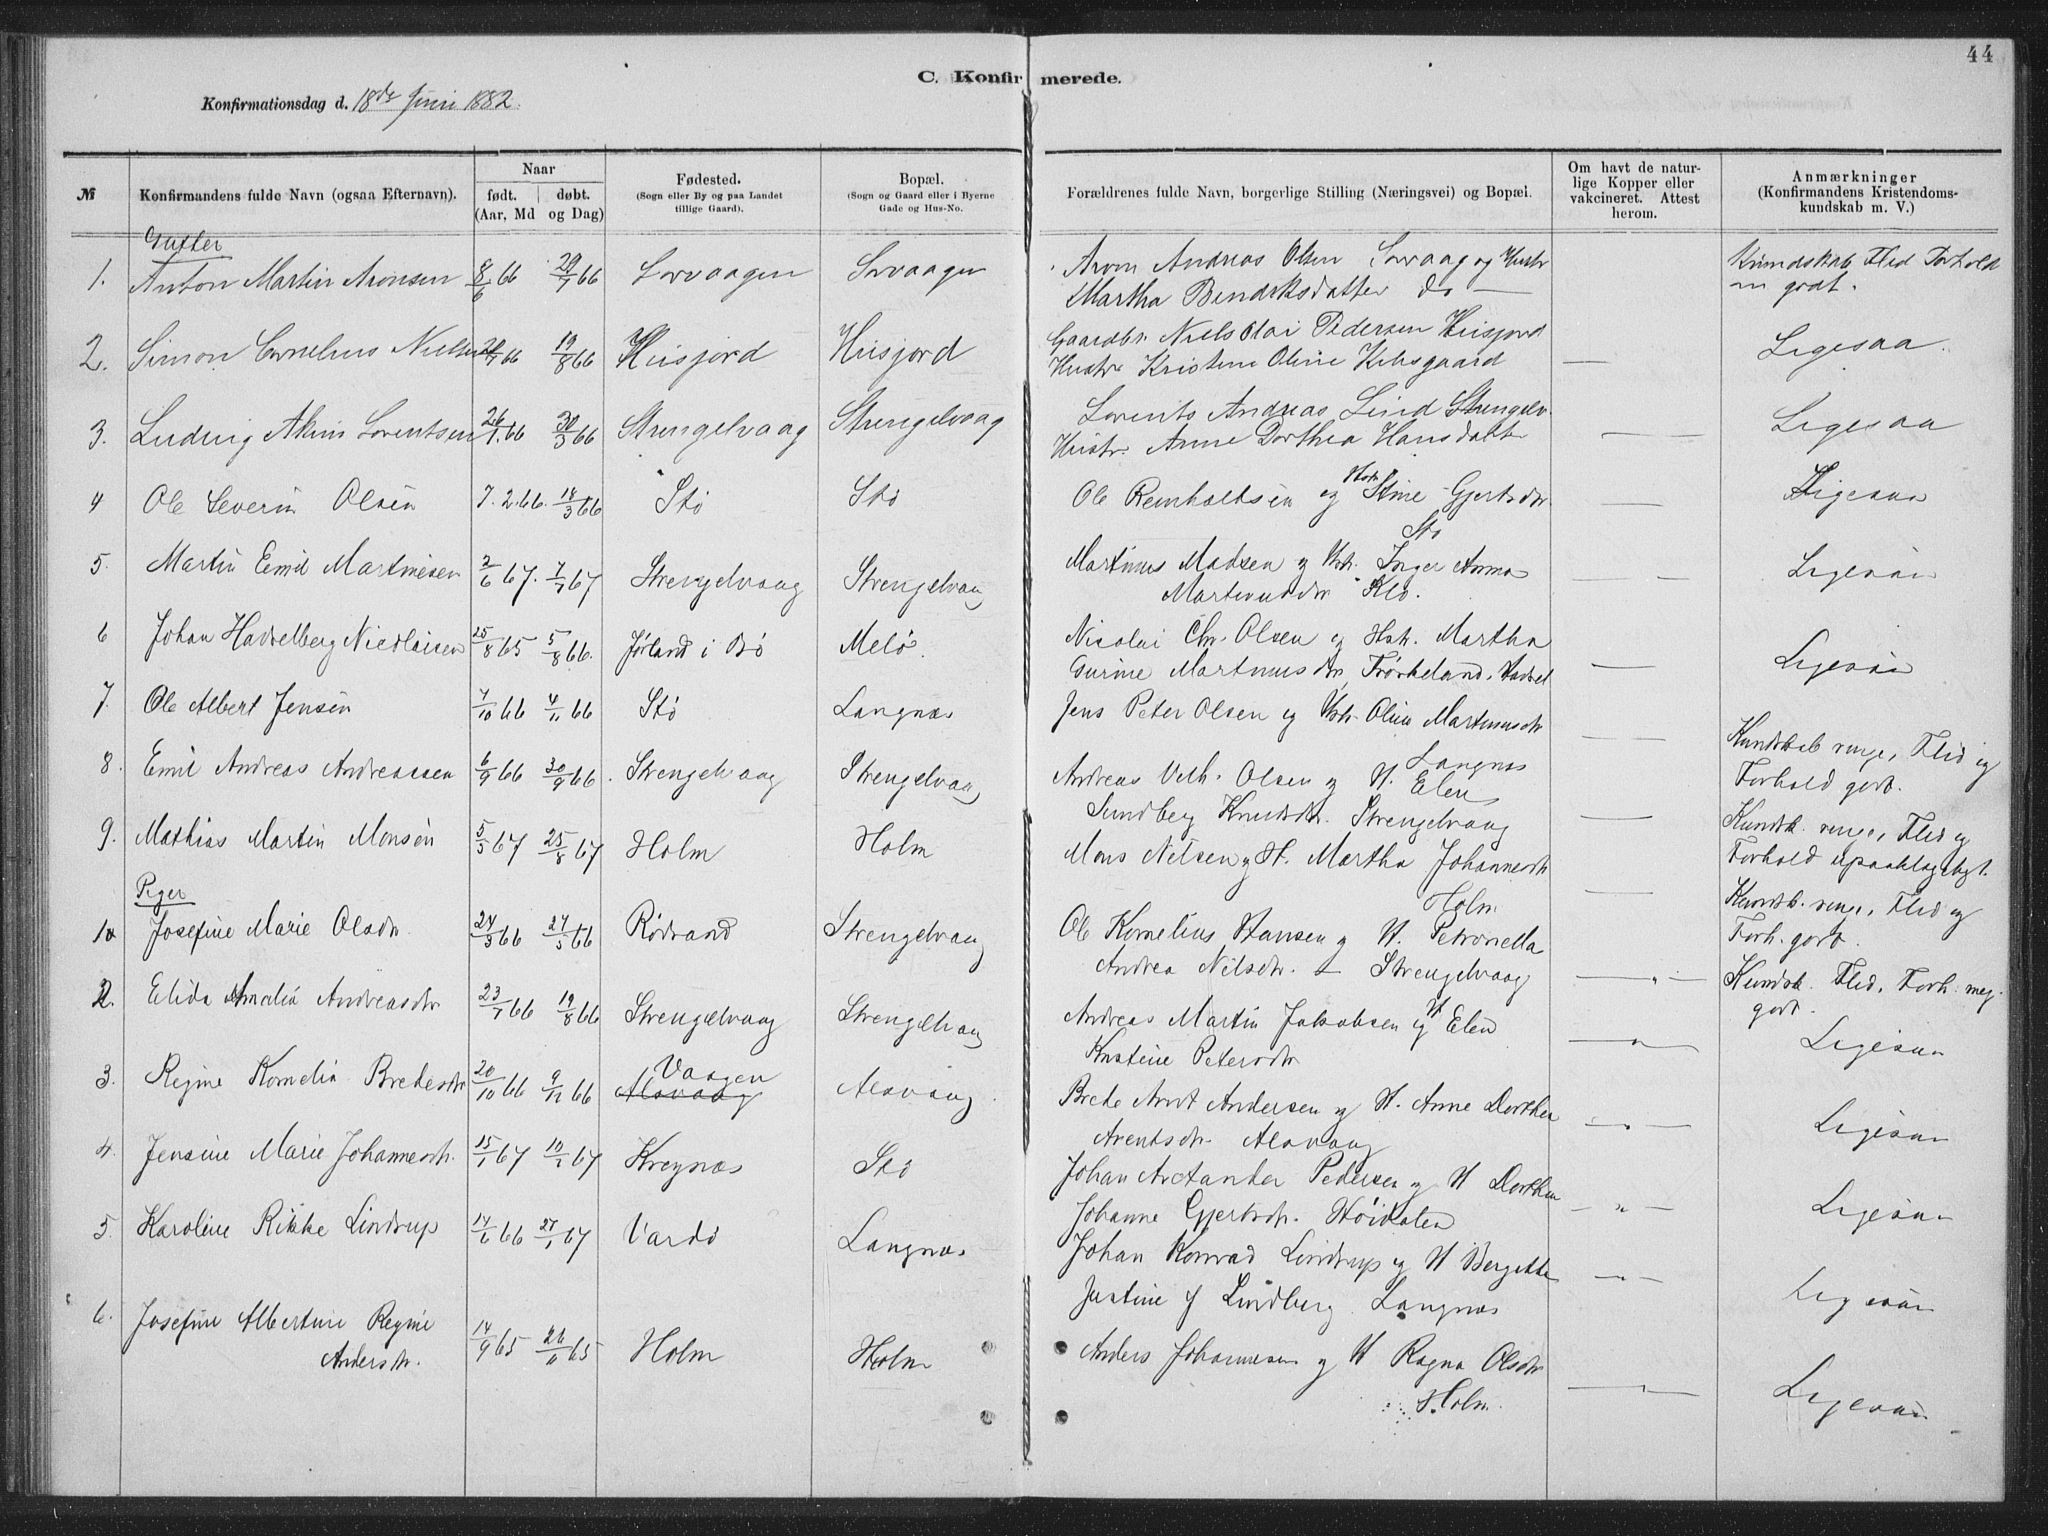 44
C. Konfirmerede.
Konfirmationsdag d. 18de Juni 1882.
№
Konfirmandens fulde Navn (ogsaa Efternavn).
Naar
født. døbt.
(Aar, Md og Dag)
Fødested.
(Sogn eller By og paa Landet
tillige Gaard).
Bopæl.
(Sogn og Gaard eller i Byerne
Gade og Hus-No.
Forældrenes fulde Navn, borgerlige Stilling (Næringsvei) og Bopæl.
Om havt de natur-
lige Kopper eller
vakcineret. Attest
herom.
Anmærkninger
(Konfirmandens Kristendoms-
kundskab m. V.)
Gutter
1. Anton Martin Aronsen 8/6 66 29/7 66 Sorvaagen Sorvaagen
Aron Andreas Olsen Sorvaag og Hustr
Martha Bendiksdatter do —
Kundskab Flid Forhold
m godt.
2. Simon Cornelius Nielsen 66 19/8 66 Hiisjord Hiisjord
Gaardbr. Niels Olai Pedersen Hiisjord
Hustr Kristine Oline Kibsgaard
— Ligesaa.
3. Ludvig Akim Lorentsen 26/1 66 30/3 66 Strengelvaag Strengelvaag
Lorents Andreas Lind Strengelv.
Hustr. Anne Dorthea Hansdattr
— Ligesaa
4 Ole Severin Olsen 7. 2. 66. 18/3 66 Stö Stö
Ole Reinholtsen og Hstr Stine Gjertsdr.
Stö
— Ligesaa
5. Martin Emil Martinesen 2/6 67. 7/7 67 Strengelvaag Strengelvaag
Martinus Madsen og Hstr. Inger Anna
Martinusdr Klo.
— Ligesaa
6 Johan Hadselberg Nicolaisen 25/8 65 5/8 66. Jørland i Bö Melö.
Nicolai Chr. Olsen og Hstr. Martha
Gurine Martinusdr, Frøskeland, Hadsel
— Ligesaa
7. Ole Albert Jensen 7/10 66 4/11 66 Stö Langnæs
Jens Peter Olsen og Hstr Oline Martinusdr
Langnæs
— Kundskab ringe, Flid og
Forhold godt.
8. Emil Andreas Andreassen 6/9 66 30/9 66. Strengelvaag Strengelvaag
Andreas Velh. Olsen og H. Elen
Sundberg Knudsdr. Strengelvaag
— Kundsk. ringe, Flid og
Forhold upaaklageligt.
9. Mathias Martin Monsen 5/5 67 25/8 67 Holm Holm
Mons Nilsen og H. Martha Johannesdr
Holm
— Kundsk. ringe, Flid og
Forh. godt.
Piger
10 Josefine Marie Olsdr. 24/3 66 27/5 66 Rödsand Strengelvaag
Ole Kornelius Hansen og H. Petronella
Andrea Nilsdr. — Strengelvaag
— " — Kundsk. Flid, Forh. meg.
godt.
2. Elida Amalia Andreasdr 23/7 66 19/8 66 Strengelvaag Strengelvaag
Andreas Martin Jakobsen og H Elen
Kristine Petersdr
— " — Ligesaa
3. Regine Kornelia Bredesdr 20/10 66 9/12 66 Vaagen
Alsvaag Alsvaag.
Brede Arnt Andersen og H. Anne Dorthea
Arentsdr. Alsvaag
— " — Ligesaa
4. Jensine Marie Johannesdr. 15/1 67 67 Kregnæs Stö
Johan Arctander Pedersen og H Dorthea
Johanne Gjertsdr. Höidalen
— " — Ligesaa
5. Karoline Rikke Lindrup 14/6 66 27/1 67 Vardö Langnæs
Johan Konrad Lindrup og H Bergette
Justine f Lindberg Langnæs
— " — Ligesaa
6. Josefine Albertine Regine
Andersdr. 14/9 65 26/11 65 Holm Holm
Anders Johannesen og H Ragna Olsdr
Holm.
— " — Ligesaa